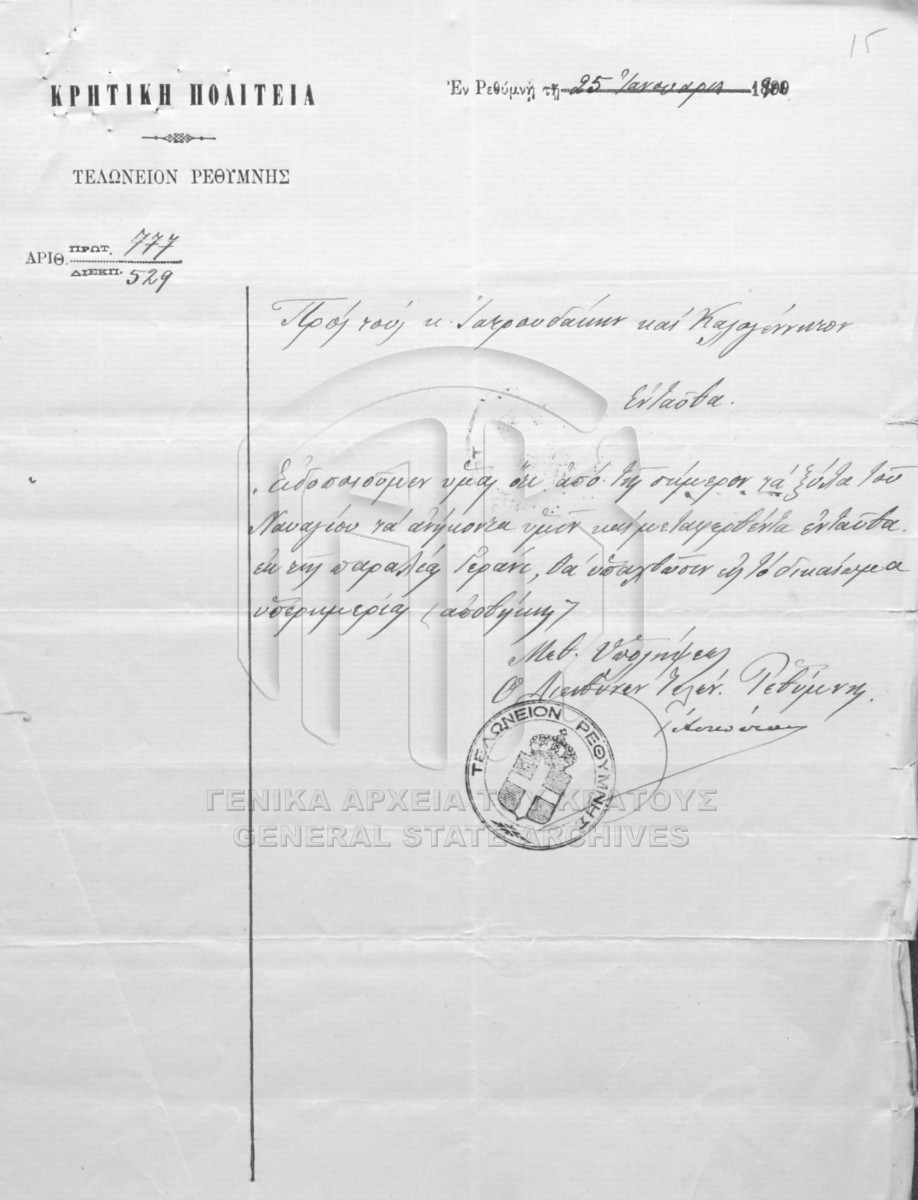 15
ΚΡΗΤΙΚΗ ΠΟΛΙΤΕΙΑ
Ἐν Ρεθύμνῃ τῇ 25 Ἰανουαρίου
ΤΕΛΩΝΕΙΟΝ ΡΕΘΥΜΝΗΣ
ΑΡΙΘ. ΠΡΩΤ. 777
ΔΙΕΚΠ. 529
Πρὸς τοὺς κ. Ἰατρουδάκην καὶ Καλογέννητον
Ἐνταῦθα.
Εἰδοποιοῦμεν ὑμᾶς ὅτι ἀπὸ τῆς σήμερον τὰ ξύλα τοῦ
Ναυαγίου τὰ ἀνήκοντα ὑμῖν καὶ μεταφερθέντα ἐνταῦθα
ἐκ τῆς παραλίας Γεράνι, θὰ ὑπαχθῶσιν εἰς τὸ δικαίωμα
ὑπερημερίας (ἀποθήκης)
Μεθ' Ὑπολήψεως
Ὁ Διευθύνων Τελών. Ρεθύμνης
ΤΕΛΩΝΕΙΟΝ ΡΕΘΥΜΝΗΣ
ΓΕΝΙΚΑ ΑΡΧΕΙΑ ΤΟΥ ΚΡΑΤΟΥΣ
GENERAL STATE ARCHIVES